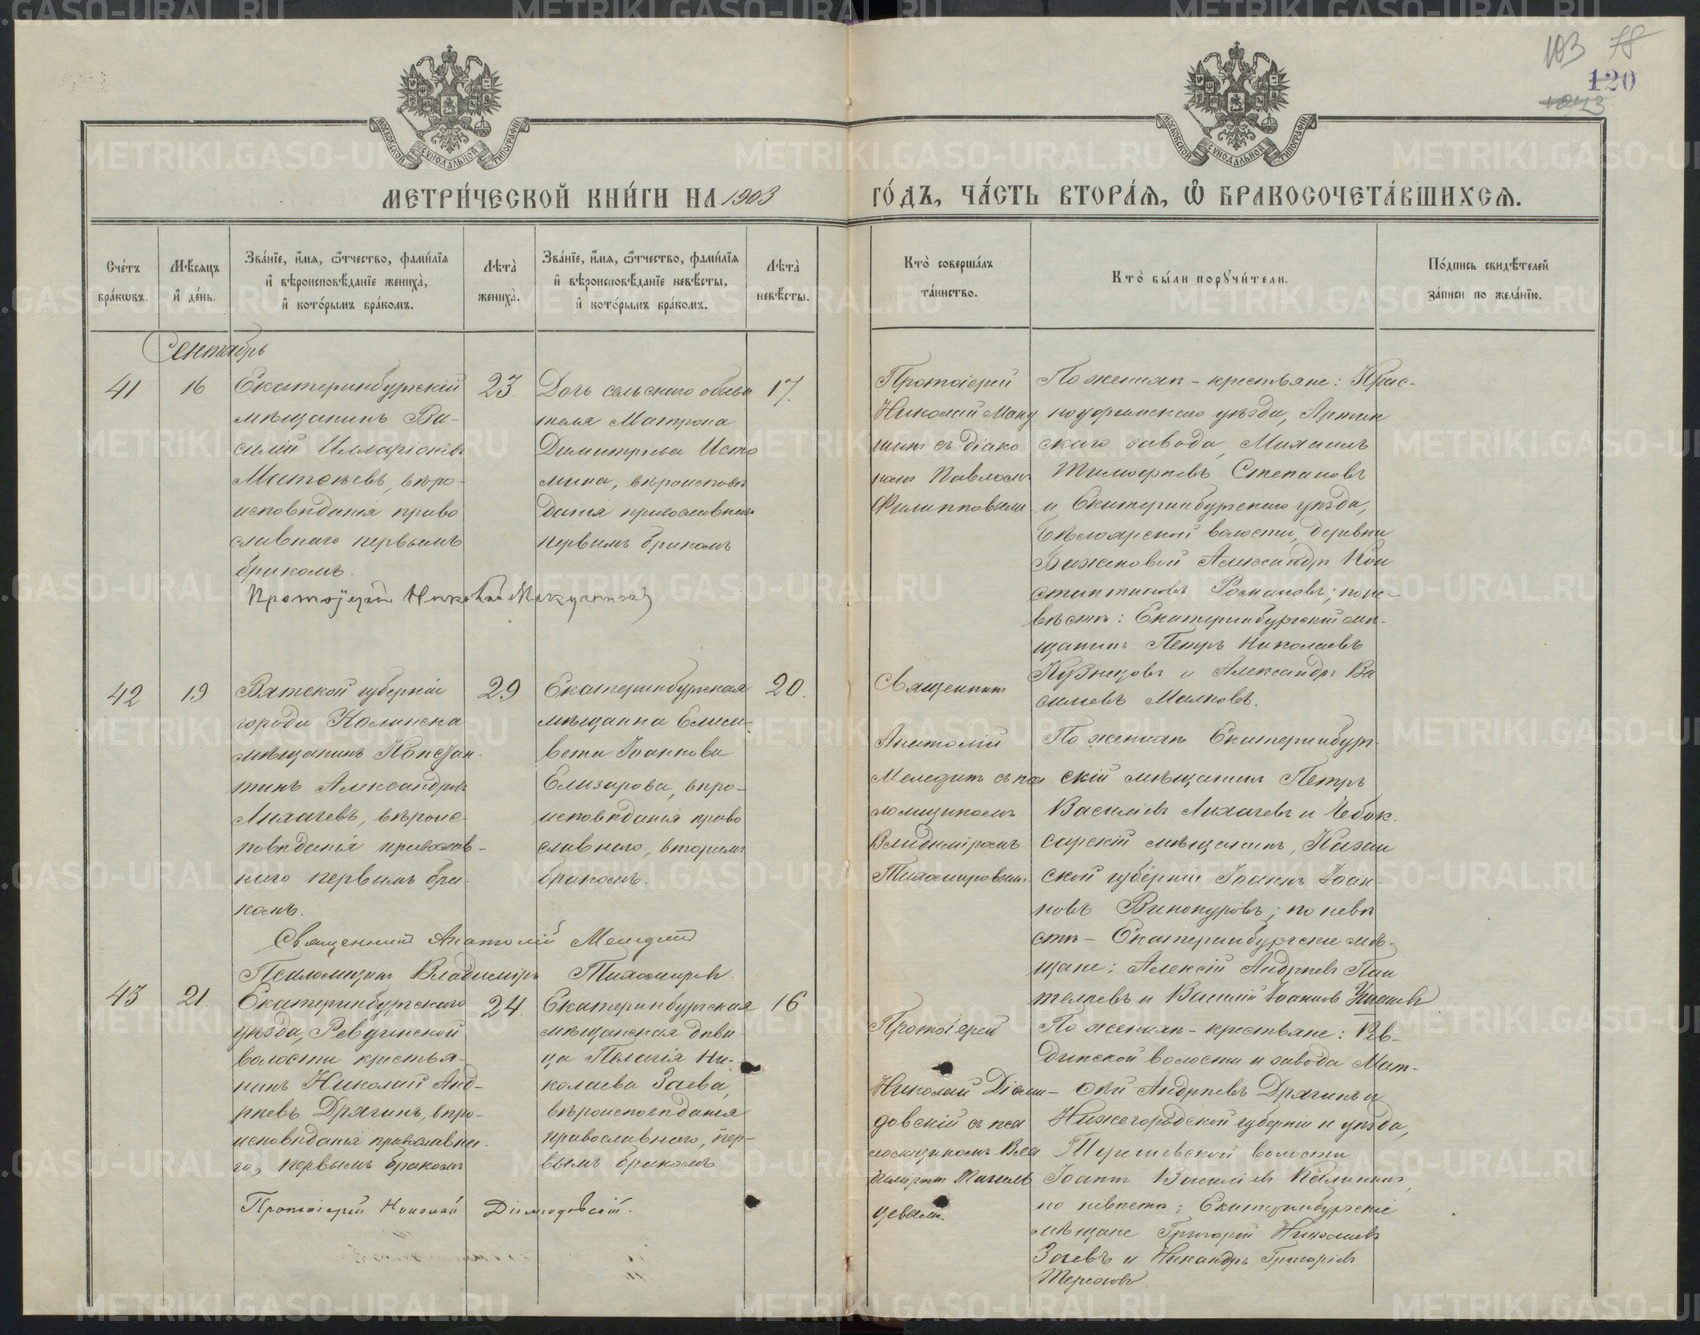 103 78
120
1023
МЕТРИ́ЧЕСКОЙ КНИ́ГИ НА 1903 ГО́ДЪ, ЧА́СТЬ ВТОРА́Я, Ѡ БРАКОСОЧЕТА́ВШИХСЯ.
Сче́тъ бра́ковъ.
Мѣ́сяцъ и де́нь.
Зва́нїе, и́мя, ѻ́тчество, фами́лїя и вѣроисповѣ́данїе жениха̀, и кото́рымъ бра́комъ.
Лѣта̀ жениха̀.
Зва́нїе, и́мя, ѻ́тчество, фами́лїя и вѣроисповѣ́данїе невѣ́сты, и кото́рымъ бра́комъ.
Лѣта̀ невѣ́сты.
Кто̀ соверша́лъ та́инство.
Кто̀ бы́ли поручи́тели.
По́дпись свидѣ́телей за́писи по жела́нїю.
Сентябрь
41
16
Екатеринбургскій
мѣщанинъ Ва-
силій Илларіоновъ
вѣро-
исповѣданія право
славнаго первымъ
бракомъ.
23.
Дочь сельскаго обыва
теля Матрона
Димитріева Исто
мина, вѣроисповѣ
данія православнаго
первымъ бракомъ
17.
Протоіерей
Николай
съ діако
номъ Павломъ
Филипповымъ
По женихѣ - крестьяне: Крас-
ноуфимскаго уѣзда, Артин
скаго завода, Михаилъ
Тимофеевъ Степановъ
и Екатеринбургскаго уѣзда,
Бѣлоярской волости, деревни
Баженовой Александръ Кон
стантиновъ Романовъ; по не-
вѣстѣ: Екатеринбургскій мѣ-
щанинъ Петръ Николаевъ
Кузнецовъ и Александръ Ва
сильевъ Малковъ.
Протоіерей Николай
42
19
Вятской губерніи
города Нолинска
мѣщанинъ Констан-
тинъ Александровъ
Лихачевъ, вѣроис-
повѣданія православ-
наго первымъ бра-
комъ.
29
Екатеринбургская
мѣщанка Елиса-
вета Іоаннова
Елизарова, вѣро-
исповѣданія право
славнаго, вторымъ
бракомъ.
20.
Священникъ
Анатолій
Мелединъ съ пса
ломщикомъ
Владиміромъ
Тихомировымъ
По женихѣ Екатеринбург-
скій мѣщанинъ Петръ
Василіевъ Лихачевъ и Чебок-
сарскій мѣщанинъ, Казан
ской губерніи Іоаннъ Іоан-
новъ Винокуровъ; по невѣ
стѣ - Екатеринбургскіе мѣ-
щане: Алексій Андреевъ Пан
телѣевъ и Василій Іоанновъ
Священникъ Анатолій Меледин
Псаломщикъ Владиміръ Тихомировъ.
43
21.
Екатеринбургскаго
уѣзда, Ревдинской
волости крестья-
нинъ Николай Анд-
реевъ Дрягинъ, вѣро-
исповѣданія православна-
го, первымъ бракомъ
24.
Екатеринбургская
мѣщанская дѣви
ца Пелагія Ни-
колаева Заева,
вѣроисповѣданія
православнаго, пер-
вымъ бракомъ
16
Протоіерей
Николай Діоми-
довскій съ пса
ломщикомъ Вла
диміромъ
По женихѣ - крестьяне: Рев-
динской волости и завода Мат-
ѳѣй Андреевъ Дрягинъ и
Нижегородской губерніи и уѣзда,
волости
Іоаннъ Василіевъ Калининъ,
по невѣстѣ: Екатеринбургскіе
мѣщане Григорій Николаевъ
Заевъ и Никандръ Григоріевъ
Протоіерей Николай Діомидовскій.